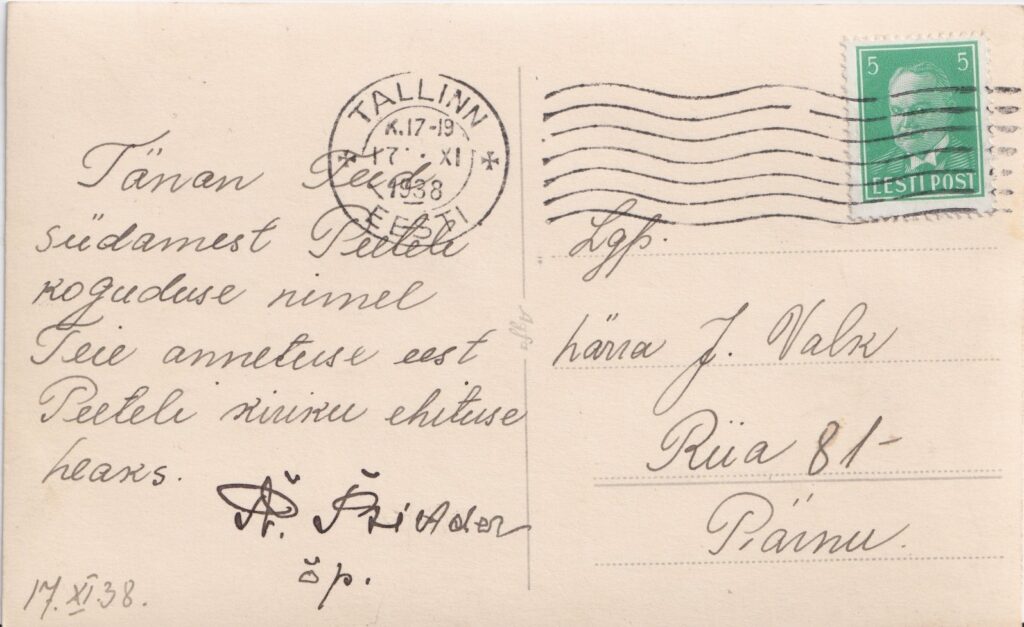 TALLINN
K.17-19
17 XI
1938
EESTI
5 5
EESTI POST
Tänan Teid
südamest Peeteli
koguduse nimel
Teie annetuse eest
Peeteli kiriku ehituse
heaks.
õp.
17.XI.38.
Lgp.
härra J. Valk
Riia 81-
Pärnu.